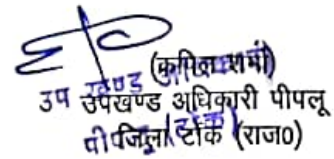 (कपिल शर्मा)
उप उपखण्ड अधिकारी पीपलू
जिला टोंक (राज0)